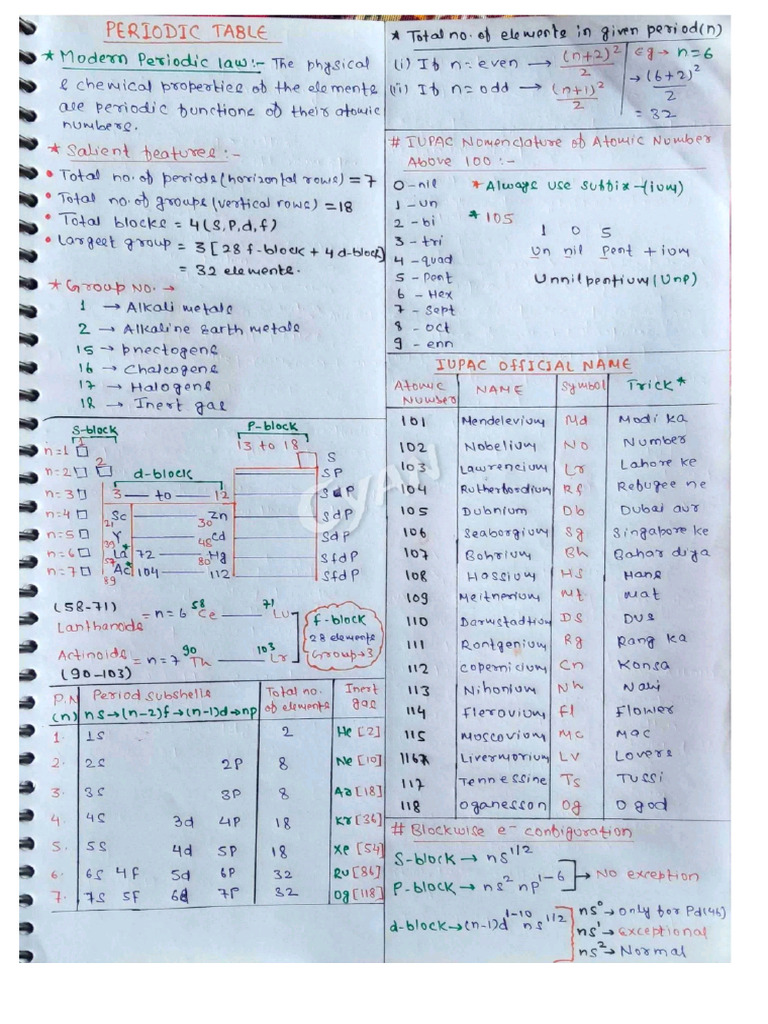 PERIODIC TABLE
* Modern Periodic law:- The physical
& chemical properties of the elements
are periodic functions of their atomic
numbers.
* Salient features:-
• Total no. of periods (horizontal rows) = 7
• Total no. of groups (vertical rows) = 18
• Total blocks = 4 (S, P, d, f)
• Largest group = 3 [28 f-block + 4 d-block]
= 32 elements.
* Group No. →
1 → Alkali metals
2 → Alkaline Earth metals
15 → pnectogens
16 → Chalcogens
17 → Halogens
18 → Inert gas
S-block P-block
1 13 to 18
n=1 S
n=2 2 d-block SP
n=3 3 — to — 12 SdP
n=4 21 Sc — 30 Zn SdP
n=5 39 Y — 48 cd SdP
n=6 57 La* 72 — 80 Hg SfdP
n=7 89 Ac* 104 — 112 SfdP
(58-71)
Lanthanoids = n=6 58 Ce — 71 Lu
f-block
28 elements
Group→3
Actinoids = n=7 90 Th — 103 Lr
(90-103)
P.N Period Subshells Total no. Inert
(n) ns→(n-2)f→(n-1)d→np of elements gas
1. 1S 2 He [2]
2. 2S 2P 8 Ne [10]
3. 3S 3P 8 Ar [18]
4. 4S 3d 4P 18 Kr [36]
5. 5S 4d 5P 18 Xe [54]
6. 6S 4f 5d 6P 32 Ru [86]
7. 7S 5F 6d 7P 32 Og [118]
* Total no. of elements in given period(n)
(i) If n = even → (n+2)²/2
(ii) If n = odd → (n+1)²/2
Eg → n=6
→ (6+2)²/2
= 32
# IUPAC Nomenclature of Atomic Number
Above 100:-
0 - nil * Always use suffix - (ium)
1 - un
2 - bi * 105
3 - tri 1 0 5
4 - quad Un nil pent + ium
5 - pent Unnilpentium (Unp)
6 - Hex
7 - Sept
8 - oct
9 - enn
IUPAC OFFICIAL NAME
Atomic Number NAME Symbol Trick*
101 Mendelevium Md Modi ka
102 Nobelium No Number
103 Lawrencium Lr Lahore ke
104 Rutherfordium Rf Refugee ne
105 Dubnium Db Dubai aur
106 Seaborgium Sg Singapore ke
107 Bohrium Bh Bahar diya
108 Hassium HS Hans
109 Meitnerium Mt mat
110 Darmstadtium DS Dus
111 Rontgenium Rg Rang ka
112 copernicium Cn Konsa
113 Nihonium Nh Nahi
114 Flerovium Fl Flower
115 Moscovium Mc Mac
116 Livermorium LV Lovers
117 Tennessine Ts Tussi
118 Oganesson Og O god
# Blockwise e⁻ configuration
S-block → ns^1/2
P-block → ns² np^1-6 → No exception
d-block → (n-1)d^1-10 ns^1/2
ns⁰ → only for Pd(46)
ns¹ → Exceptional
ns² → Normal
CYAN